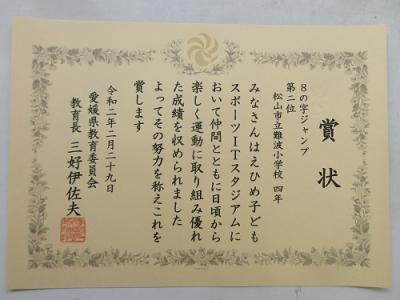 賞状
8の字ジャンプ
第二位
松山市立難波小学校 四年
みなさんはえひめ子ども
スポーツITスタジアムに
おいて仲間とともに日頃から
楽しく運動に取り組み優れ
た成績を収められました
よってその努力を称えこれを
賞します
令和二年二月二十九日
愛媛県教育委員会
教育長 三好伊佐夫